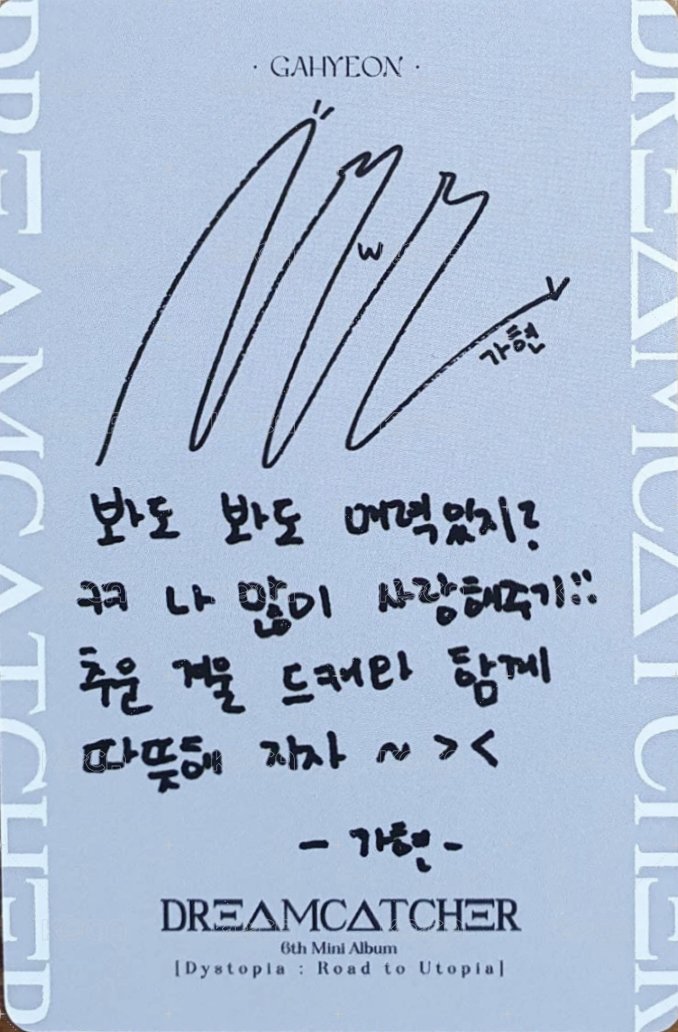 · GAHYEON ·
w
가현
봐도 봐도 매력있지?
ㅋㅋ 나 많이 사랑해주기!!
추운 겨울 드캐랑 함께
따뜻해 지자 ~ > <
- 가현 -
DREAMCATCHER
6th Mini Album
[Dystopia : Road to Utopia]
DREAMCATCHER
DREAMCATCHER